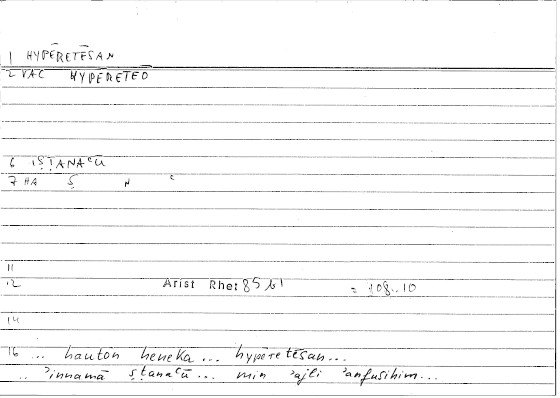 1 HYPĒRETĒSAN
2 VAC HYPĒRETEŌ
6 iṢṬANAʿŪ
7 HA Ṣ N ʿ
11
12 Arist Rhet 85 b1 = 108..10
14
16 .. hauton heneka... hypēretēsan...
.. ʾinnamā ṣṭanaʿū... min ʾajli ʾanfusihim...